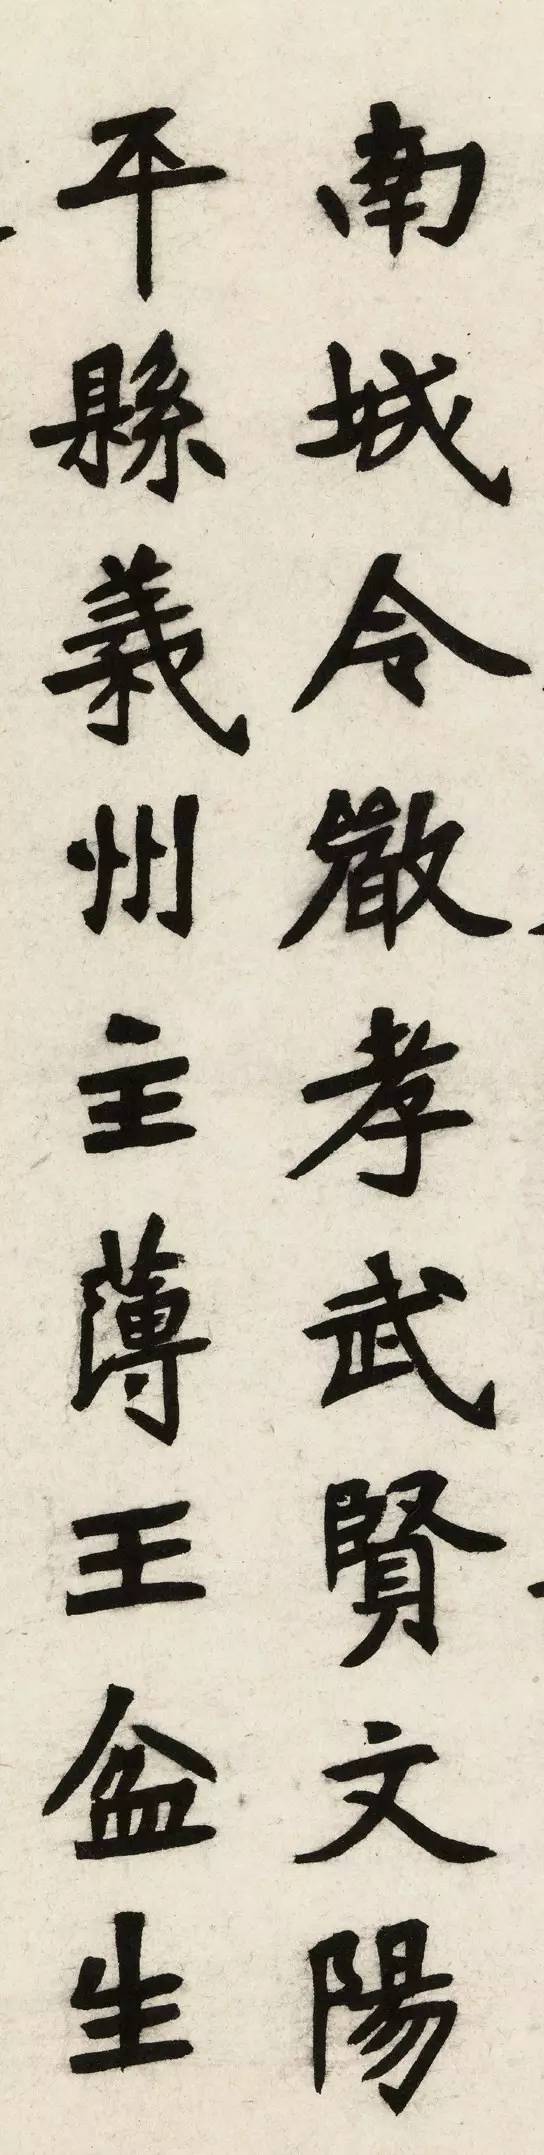 南城令嚴孝武賢文陽
平縣義州主薄王盆生